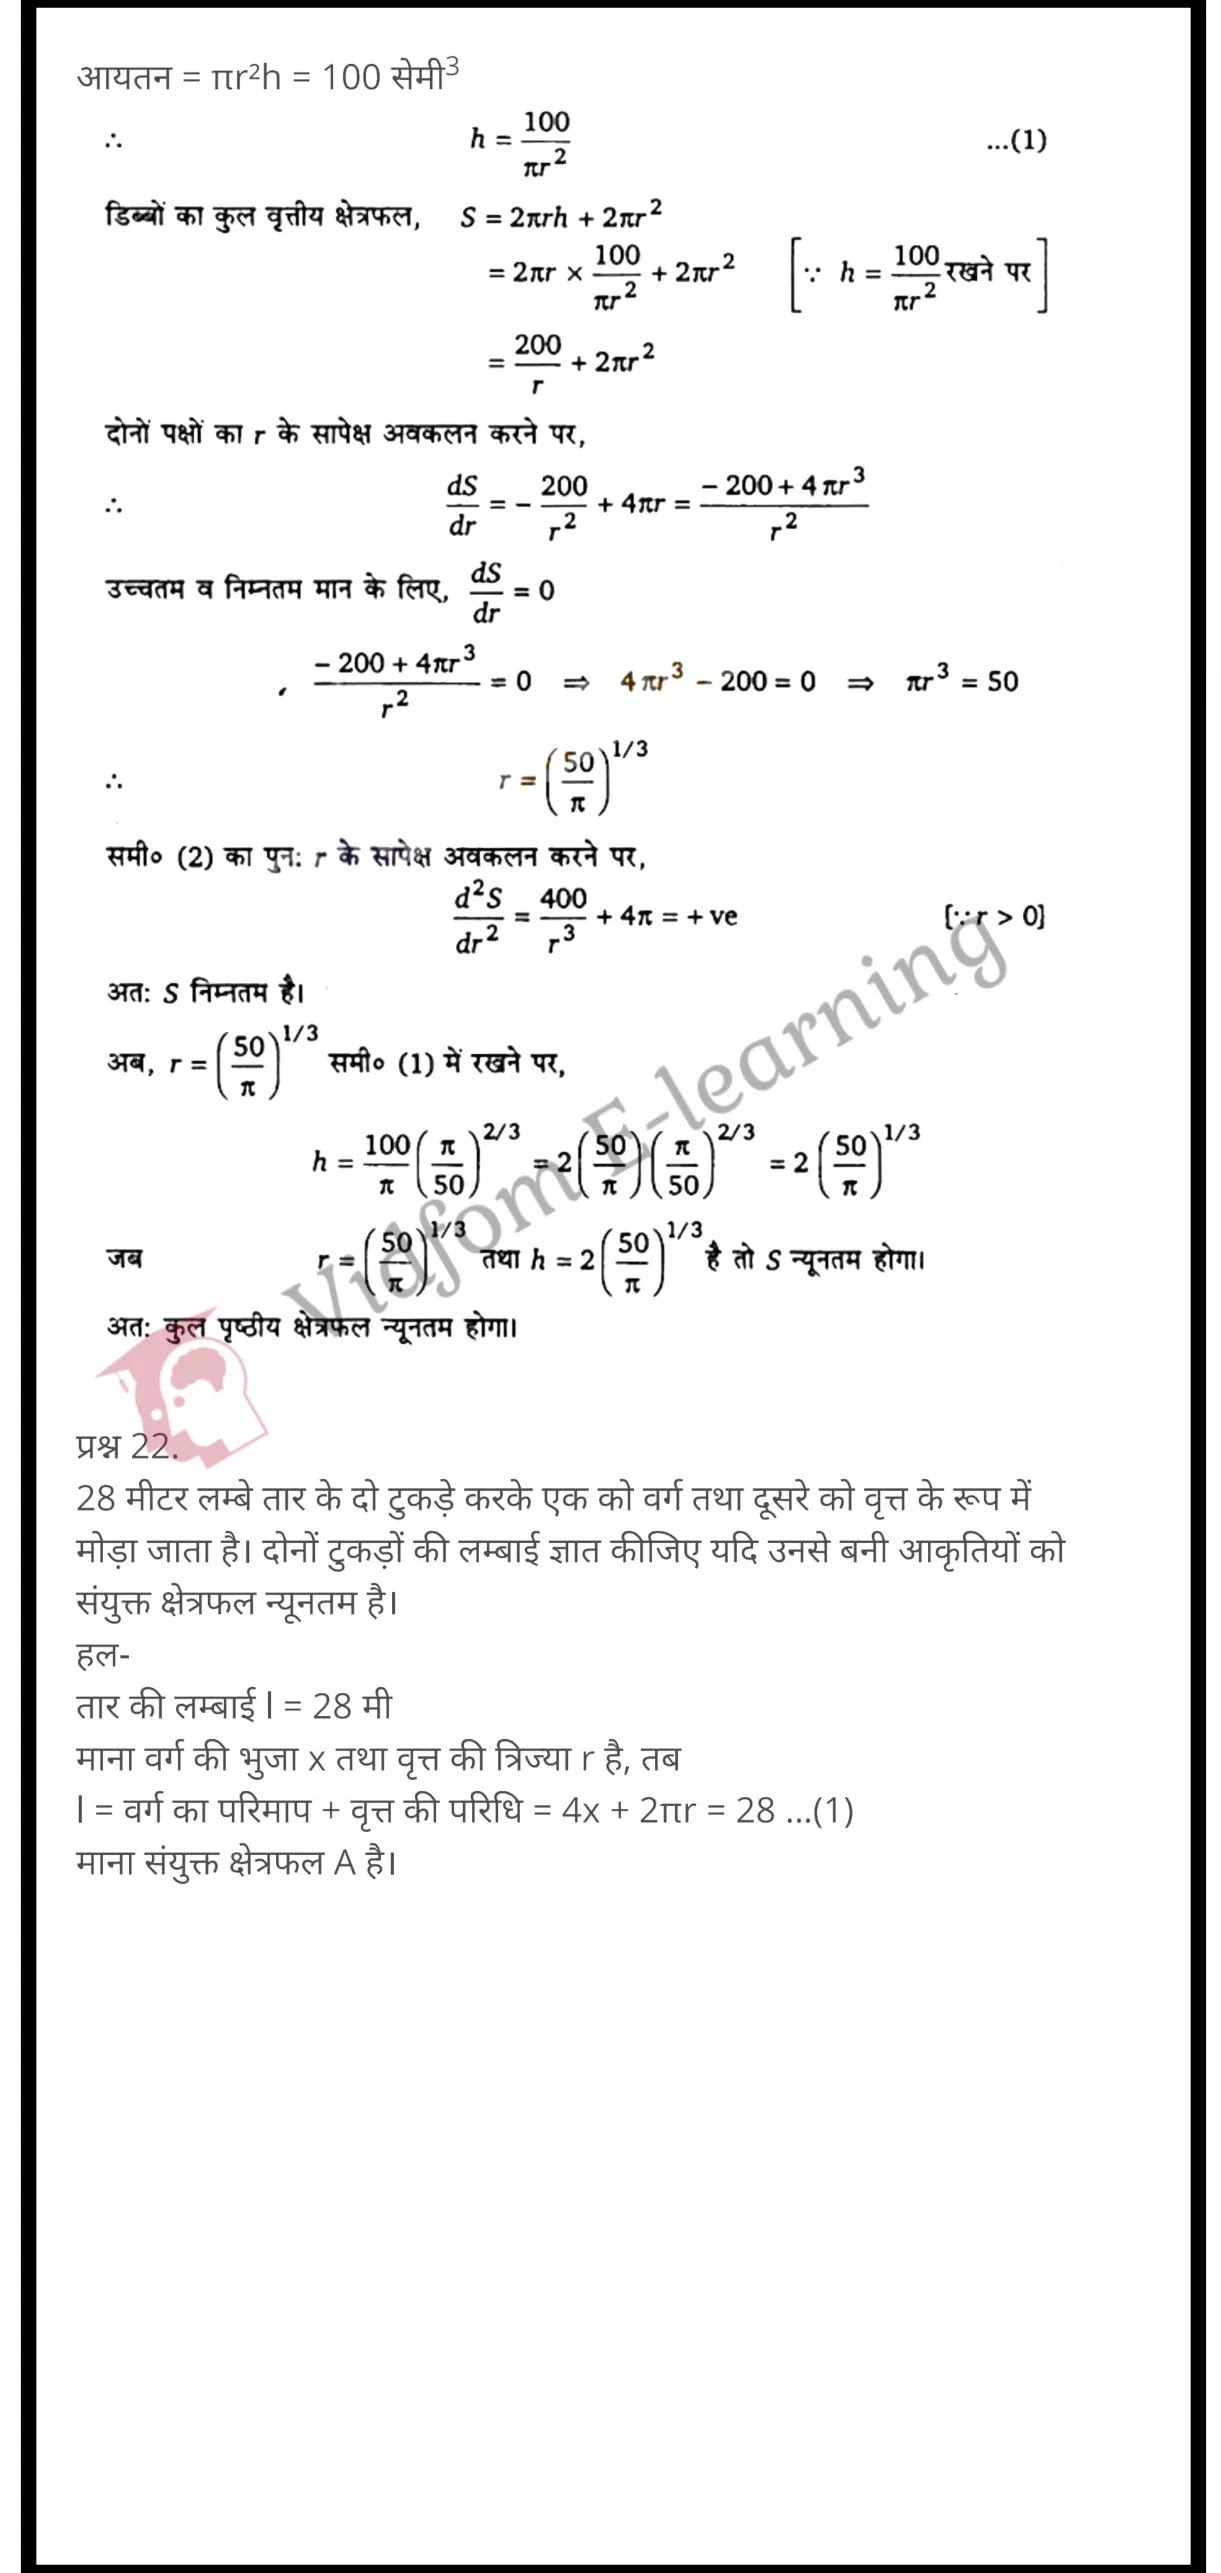 आयतन = πr²h = 100 सेमी³
∴ h = 100/πr² ...(1)
डिब्बों का कुल वृत्तीय क्षेत्रफल, S = 2πrh + 2πr²
= 2πr × 100/πr² + 2πr² [∵ h = 100/πr² रखने पर]
= 200/r + 2πr²
दोनों पक्षों का r के सापेक्ष अवकलन करने पर,
∴ dS/dr = - 200/r² + 4πr = (- 200 + 4πr³)/r²
उच्चतम व निम्नतम मान के लिए, dS/dr = 0
(- 200 + 4πr³)/r² = 0 ⇒ 4πr³ - 200 = 0 ⇒ πr³ = 50
∴ r = (50/π)^1/3
समी० (2) का पुन: r के सापेक्ष अवकलन करने पर,
d²S/dr² = 400/r³ + 4π = + ve [∵ r > 0]
अत: S निम्नतम है।
अब, r = (50/π)^1/3 समी० (1) में रखने पर,
h = 100/π (π/50)^2/3 = 2(50/π)(π/50)^2/3 = 2(50/π)^1/3
जब r = (50/π)^1/3 तथा h = 2(50/π)^1/3 है तो S न्यूनतम होगा।
अत: कुल पृष्ठीय क्षेत्रफल न्यूनतम होगा।
Vidfom E-learning
प्रश्न 22.
28 मीटर लम्बे तार के दो टुकड़े करके एक को वर्ग तथा दूसरे को वृत्त के रूप में
मोड़ा जाता है। दोनों टुकड़ों की लम्बाई ज्ञात कीजिए यदि उनसे बनी आकृतियों को
संयुक्त क्षेत्रफल न्यूनतम है।
हल-
तार की लम्बाई l = 28 मी
माना वर्ग की भुजा x तथा वृत्त की त्रिज्या r है, तब
l = वर्ग का परिमाप + वृत्त की परिधि = 4x + 2πr = 28 …(1)
माना संयुक्त क्षेत्रफल A है।